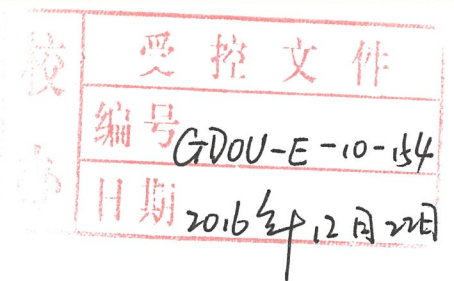 校办
受控文件
编号 GDOU-E-10-154
日期 2016年12月22日